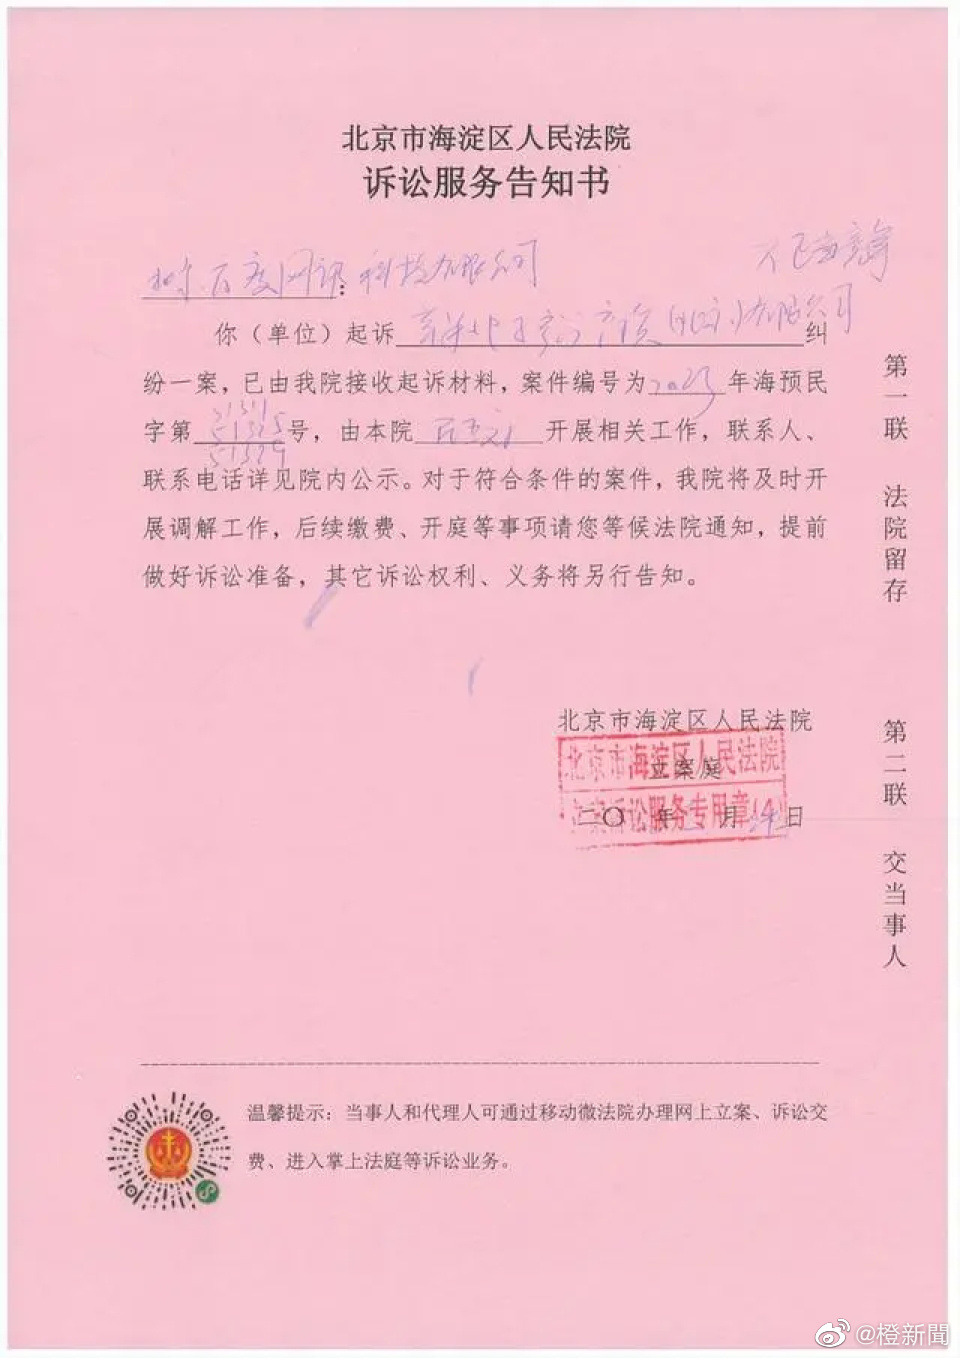 北京市海淀区人民法院
诉讼服务告知书
北京百度网讯科技有限公司:
你（单位）起诉 有限公司 纠
纷一案，已由我院接收起诉材料，案件编号为2023年海预民
字第 51325 号，由本院 开展相关工作，联系人、
51329
联系电话详见院内公示。对于符合条件的案件，我院将及时开
展调解工作，后续缴费、开庭等事项请您等候法院通知，提前
做好诉讼准备，其它诉讼权利、义务将另行告知。
北京市海淀区人民法院
立案庭
二〇 年 月 日
北京市海淀区人民法院
立案诉讼服务专用章(4)
第一联 法院留存
第二联 交当事人
温馨提示：当事人和代理人可通过移动微法院办理网上立案、诉讼交
费、进入掌上法庭等诉讼业务。
@橙新聞